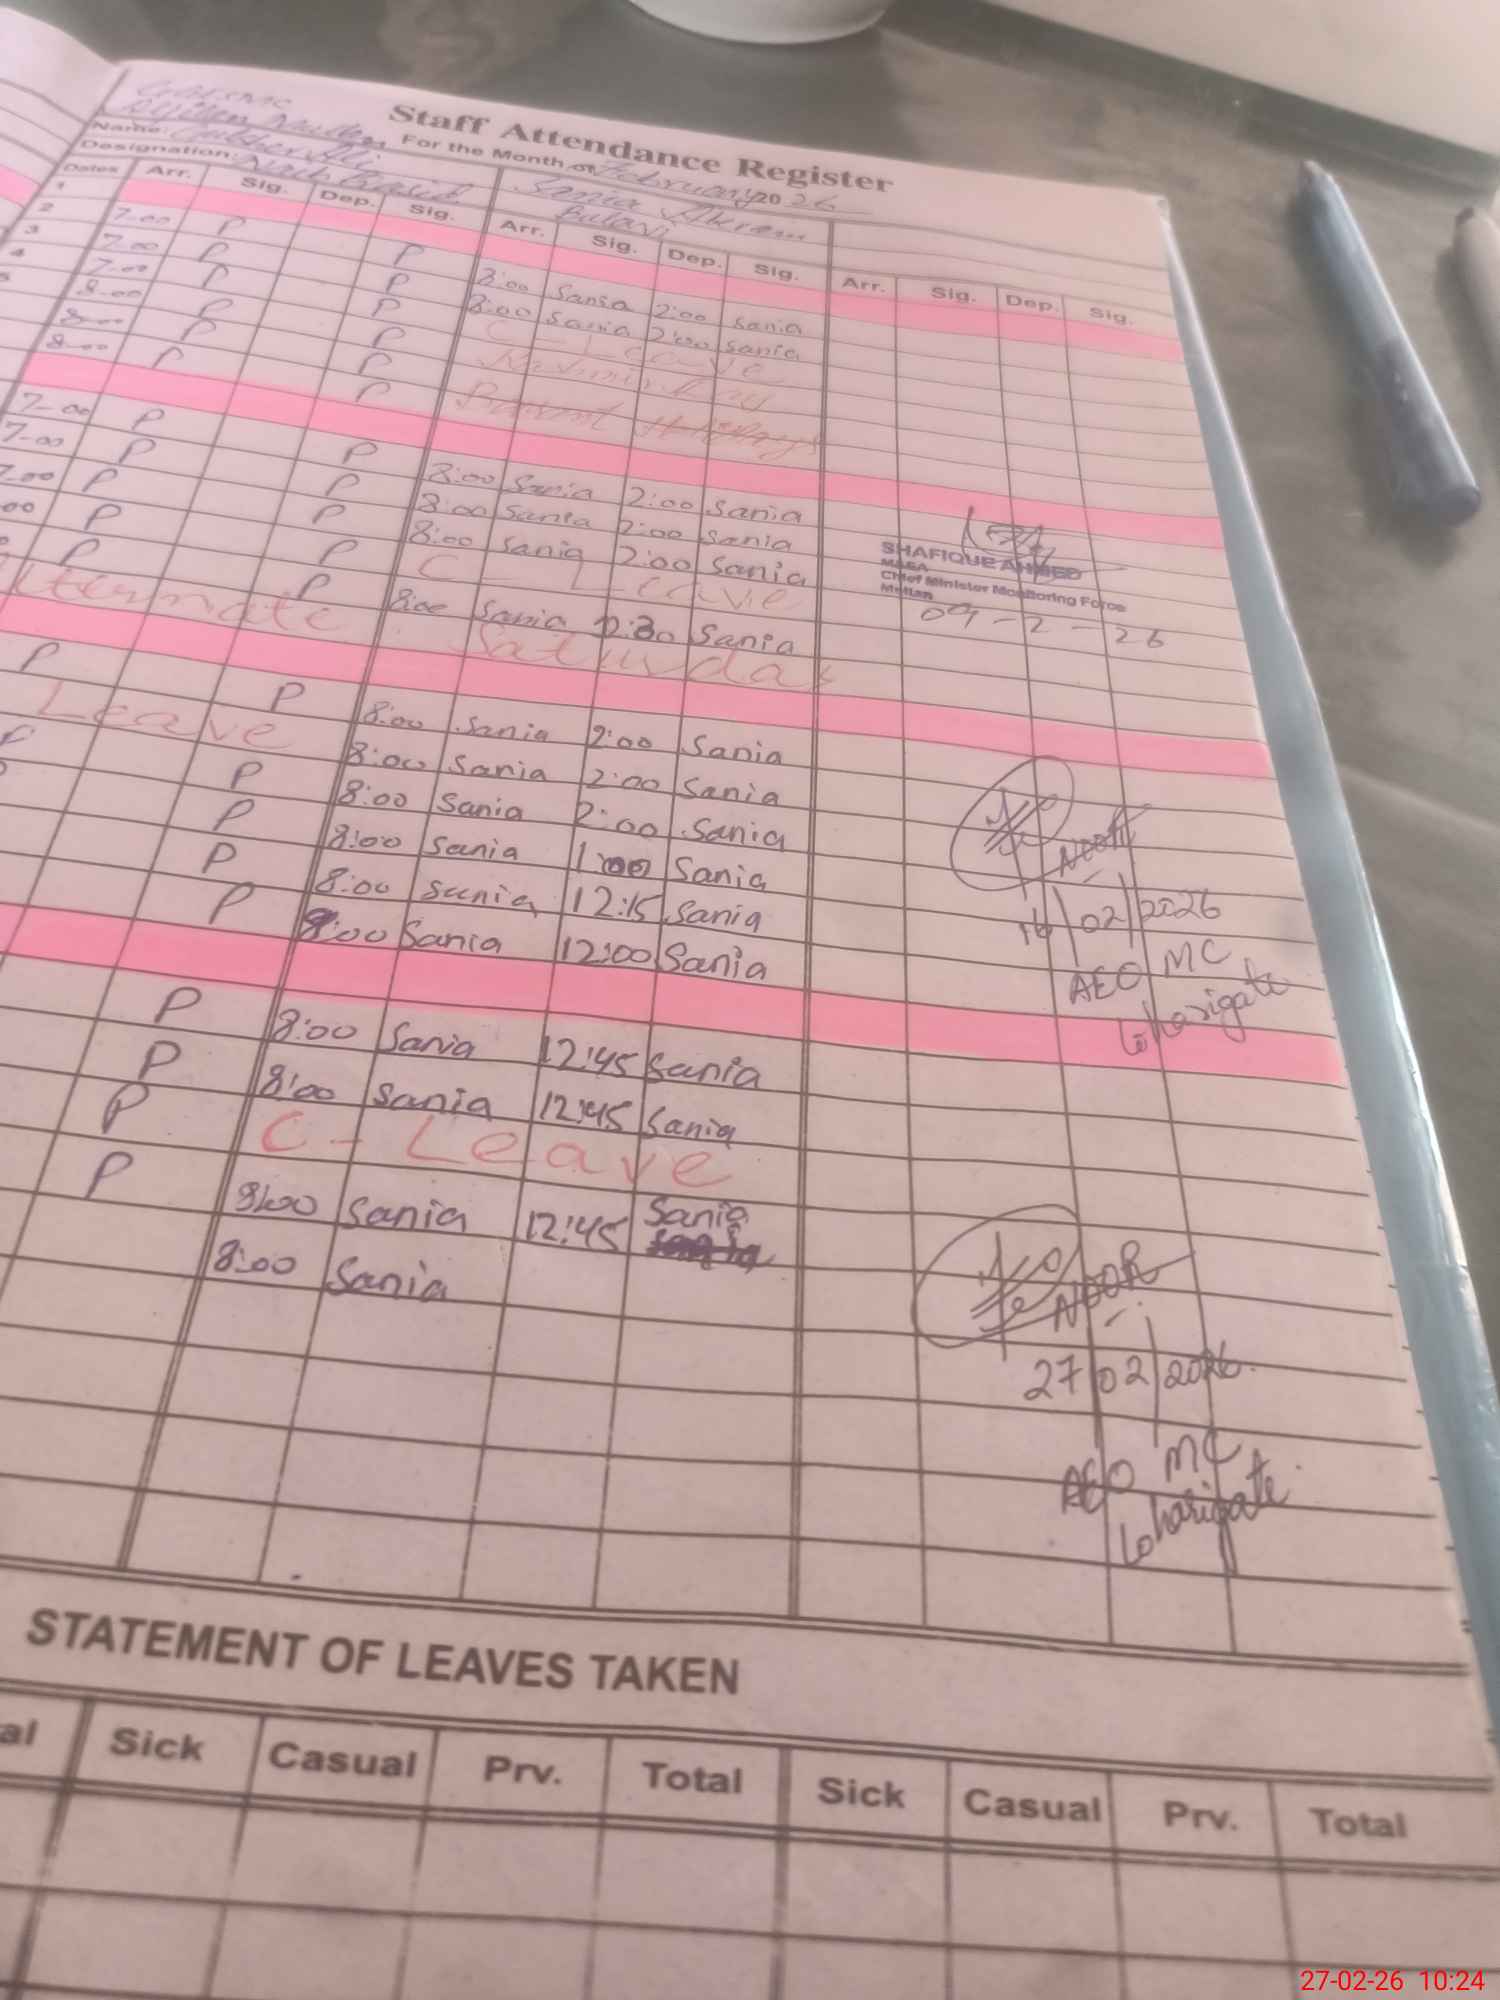 Staff Attendance Register
Name:
For the Month of February 2026
Designation:
Sania Akram
Dates Arr. Sig. Dep. Sig. Arr. Sig. Dep. Sig. Arr. Sig. Dep. Sig.
1
2 7-00 P P 8:00 Sania 2:00 Sania
3 7-00 P P 8:00 Sania 2:00 Sania
4 7-00 P P C-Leave
5 8-00 P P
8-00 P P
8-00 P P
7-00 P P 8:00 Sania 2:00 Sania
7-00 P P 8:00 Sania 2:00 Sania
7-00 P P 8:00 Sania 2:00 Sania
00 P P C-Leave
P P 8:00 Sania 12:30 Sania
Saturday
SHAFIQUE AHMED
MAEA
Chief Minister Monitoring Force
Multan
09-2-26
P P 8:00 Sania 2:00 Sania
Leave 8:00 Sania 2:00 Sania
P P 8:00 Sania 2:00 Sania
P 8:00 Sania 1:00 Sania
P 8:00 Sania 12:15 Sania
P 8:00 Sania 12:00 Sania
NOOR
16/02/2026
AEO MC
Loharigate
P 8:00 Sania 12:45 Sania
P 8:00 Sania 12:45 Sania
P C-Leave
P 8:00 Sania 12:45 Sania
8:00 Sania
NOOR
27/02/2026
AEO MC
Loharigate
STATEMENT OF LEAVES TAKEN
Sick Casual Prv. Total Sick Casual Prv. Total
27-02-26 10:24